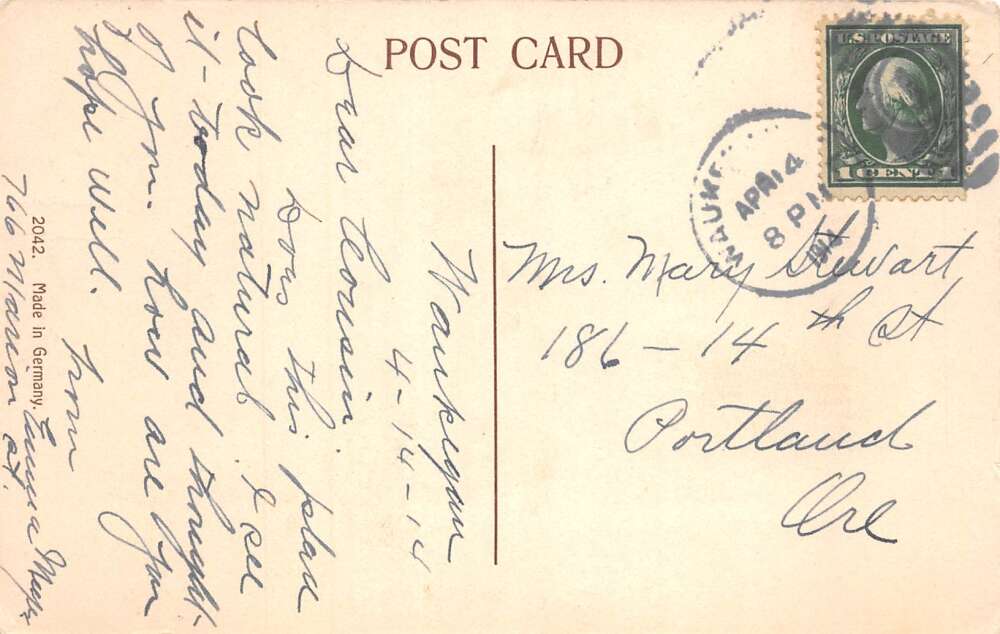 POST CARD
U.S. POSTAGE
1 CENT
WAUKE
APR 14
8 P M
Waukegan
4-14-14
Dear Cousin
Does this place
look natural I see
it - today and thought
of you. How are you
hope well.
from
Emma
766 Marion st.
2042. Made in Germany.
Mrs. Mary Stewart
186 - 14th St
Portland
Ore